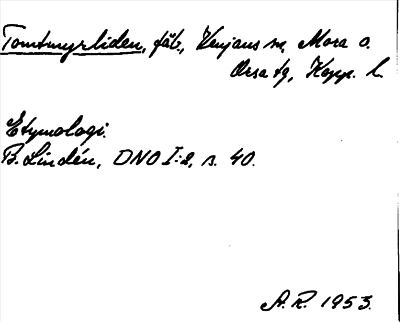 Tomtmyrliden, fäb., Venjans sn, Mora o.
Orsa tg, Kopp. l.
Etymologi.
B. Lindén, DNO I:2, s. 40.
A.R. 1953.